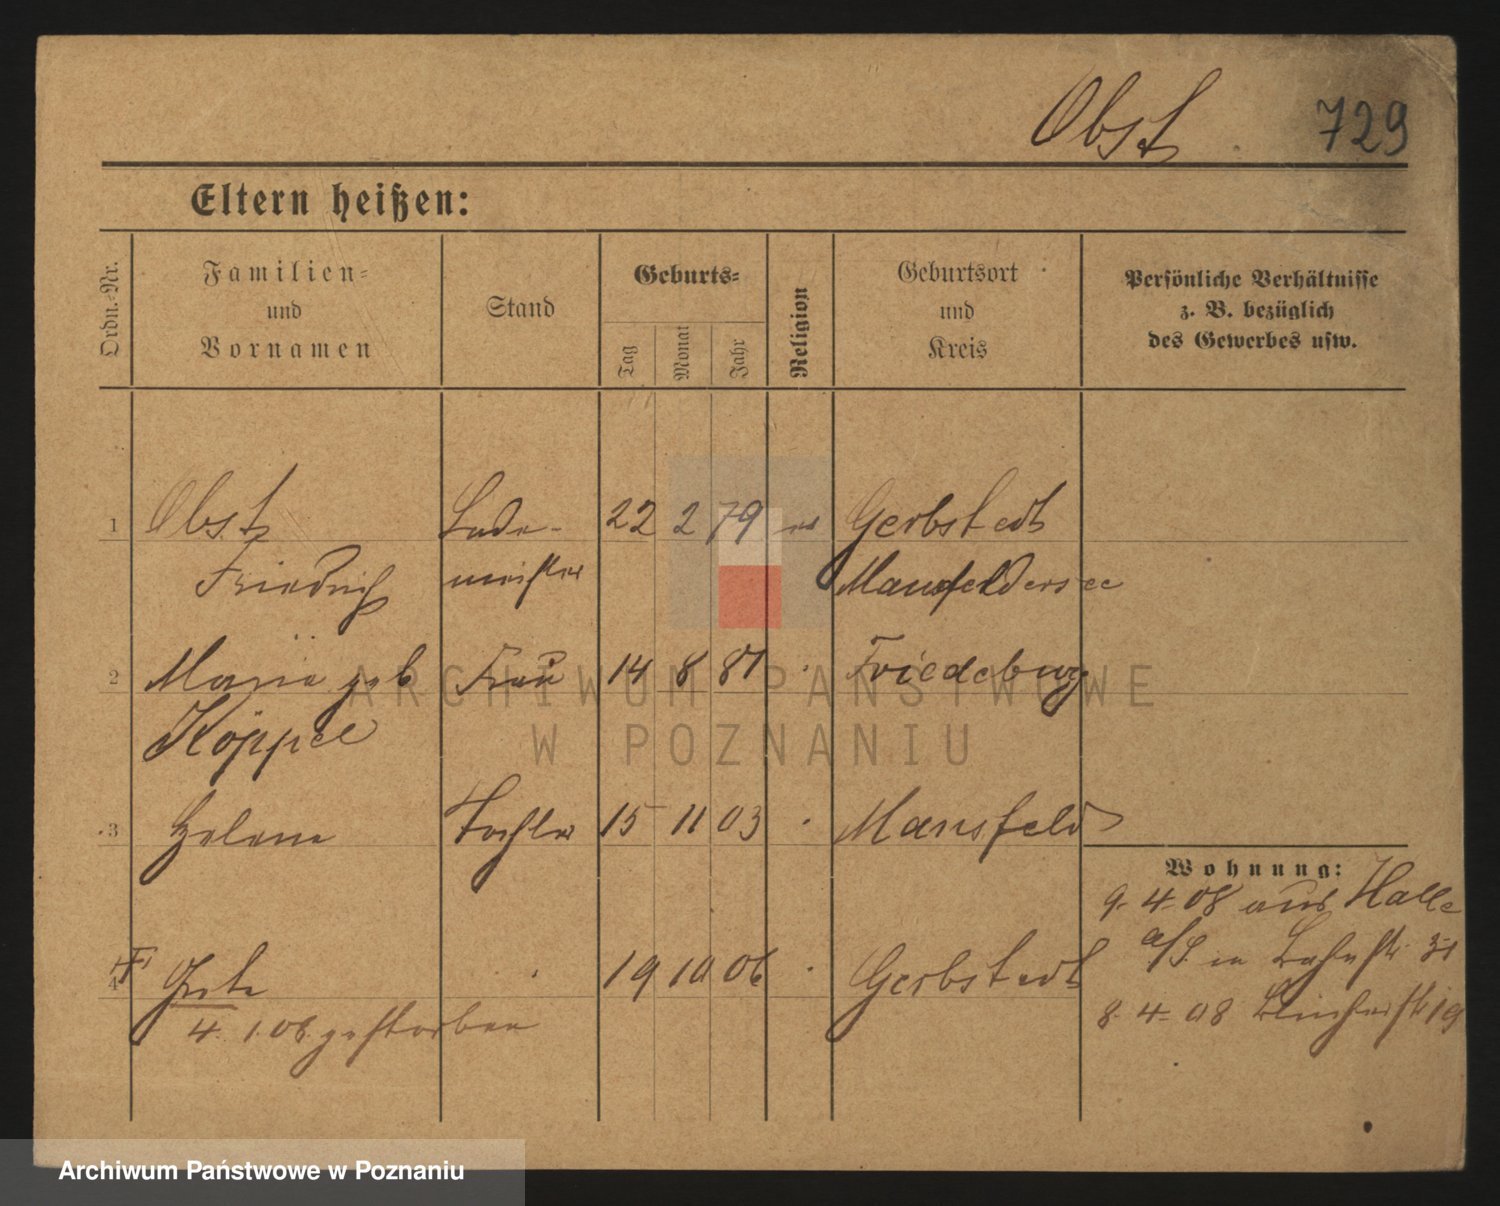 Obst 729
Eltern heißen:
Ordn.-Nr.
Familien-
und
Vornamen
Stand
Geburts-
Tag
Monat
Jahr
Religion
Geburtsort
und
Kreis
Persönliche Verhältnisse
z. B. bezüglich
des Gewerbes usw.
1 Obst Lade- 22 2 79 ev Gerbstedt
Friedrich meister Mansfelder See
2 Maria geb Frau 14 8 81 Friedeburg
Köppel
3 Helene Tochter 15 11 03 Mansfeld
Wohnung:
9. 4. 08 aus Halle
a/S. 31
4 19 10 06 Gerbstedt
4. 1. 08. gestorben
8. 4. 08 19
ARCHIWUM PAŃSTWOWE
W POZNANIU
Archiwum Państwowe w Poznaniu